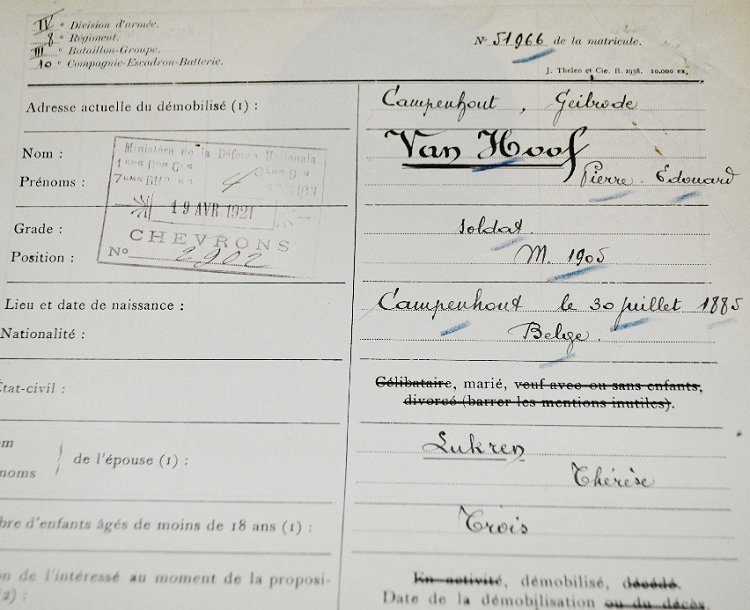 IV e Division d'armée.
8 e Régiment.
III e Bataillon-Groupe.
10 e Compagnie-Escadron-Batterie.
No 51966 de la matricule.
J. Thelen et Cie. B. 1938. 10.000 ex.
Adresse actuelle du démobilisé (1) :
Campenhout, Geibrode
Ministère de la Défense Nationale
19 AVR. 1921
CHEVRONS
No 2902
Nom :
Van Hoof
Prénoms :
Pierre Edouard
Grade :
soldat
Position :
M. 1905
Lieu et date de naissance :
Campenhout le 30 juillet 1885
Nationalité :
Belge.
État-civil :
Célibataire, marié, veuf avec ou sans enfants,
divorcé (barrer les mentions inutiles).
om
noms
de l'épouse (1) :
Lukren
Thérèse
bre d'enfants âgés de moins de 18 ans (1) :
Trois
on de l'intéressé au moment de la proposi-
(2) :
En activité, démobilisé, décédé.
Date de la démobilisation ou du décès